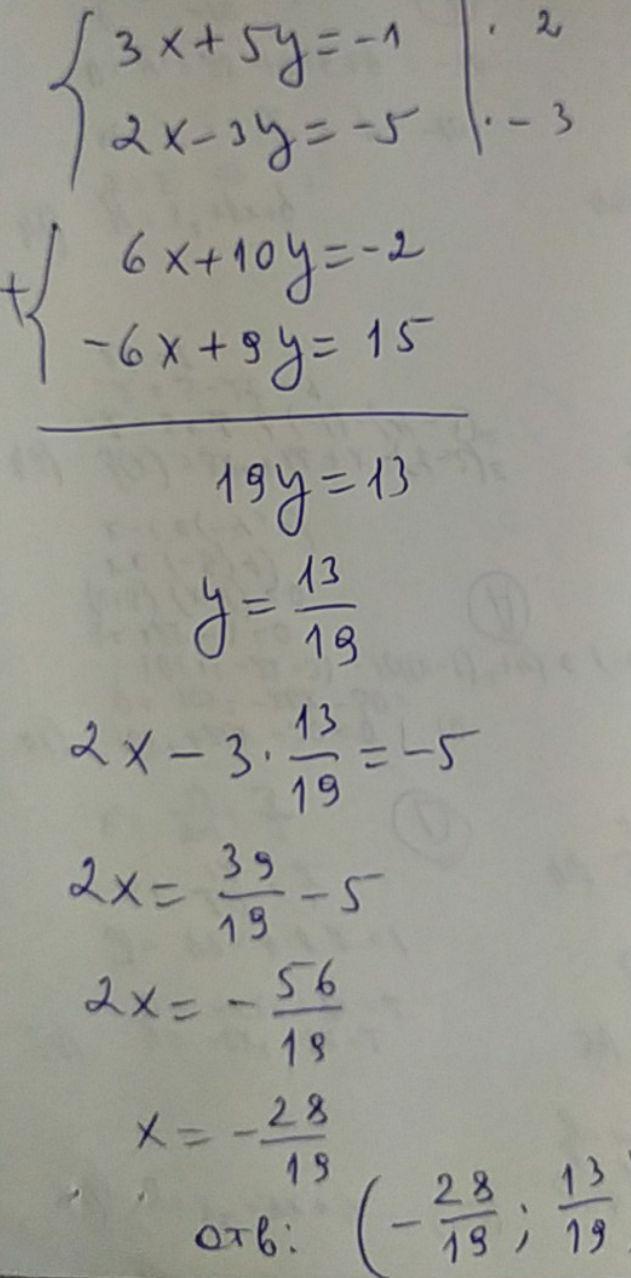 3x+5y=-1 | · 2
2x-3y=-5 | · -3
+ 6x+10y=-2
-6x+9y=15
19y=13
y=13/19
2x-3·13/19=-5
2x=39/19-5
2x=-56/19
x=-28/19
отв: (-28/19; 13/19)